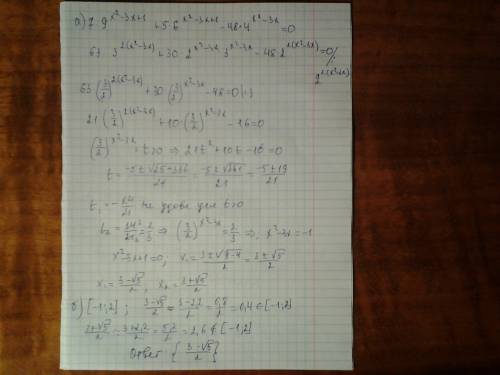 а) 7·9^(x²-3x+1) + 5·6^(x²-3x+1) - 48·4^(x²-3x) = 0
63·3^(2(x²-3x)) + 30·2^(x²-3x)·3^(x²-3x) - 48·2^(2(x²-3x)) = 0 /: 2^(2(x²-3x))
63·(3/2)^(2(x²-3x)) + 30·(3/2)^(x²-3x) - 48 = 0 |:3
21·(3/2)^(2(x²-3x)) + 10·(3/2)^(x²-3x) - 16 = 0
(3/2)^(x²-3x) = t>0 ⇒ 21t² + 10t - 16 = 0
t = (-5 ± √(25+336))/21 = (-5 ± √361)/21 = (-5 ± 19)/21
t₁ = -24/21 не удовл для t>0
t₂ = 14/21 = 2/3 ⇒ (3/2)^(x²-3x) = 2/3 ⇒ x²-3x = -1
x²-3x+1=0, x = (3±√(9-4))/2 = (3±√5)/2
x₁ = (3-√5)/2, x₂ = (3+√5)/2
б) [-1;2]; (3-√5)/2 ≈ (3-2,2)/2 = 0,8/2 = 0,4 ∈ [-1;2]
(3+√5)/2 ≈ (3+2,2)/2 = 5,2/2 = 2,6 ∉ [-1;2]
Ответ {(3-√5)/2}